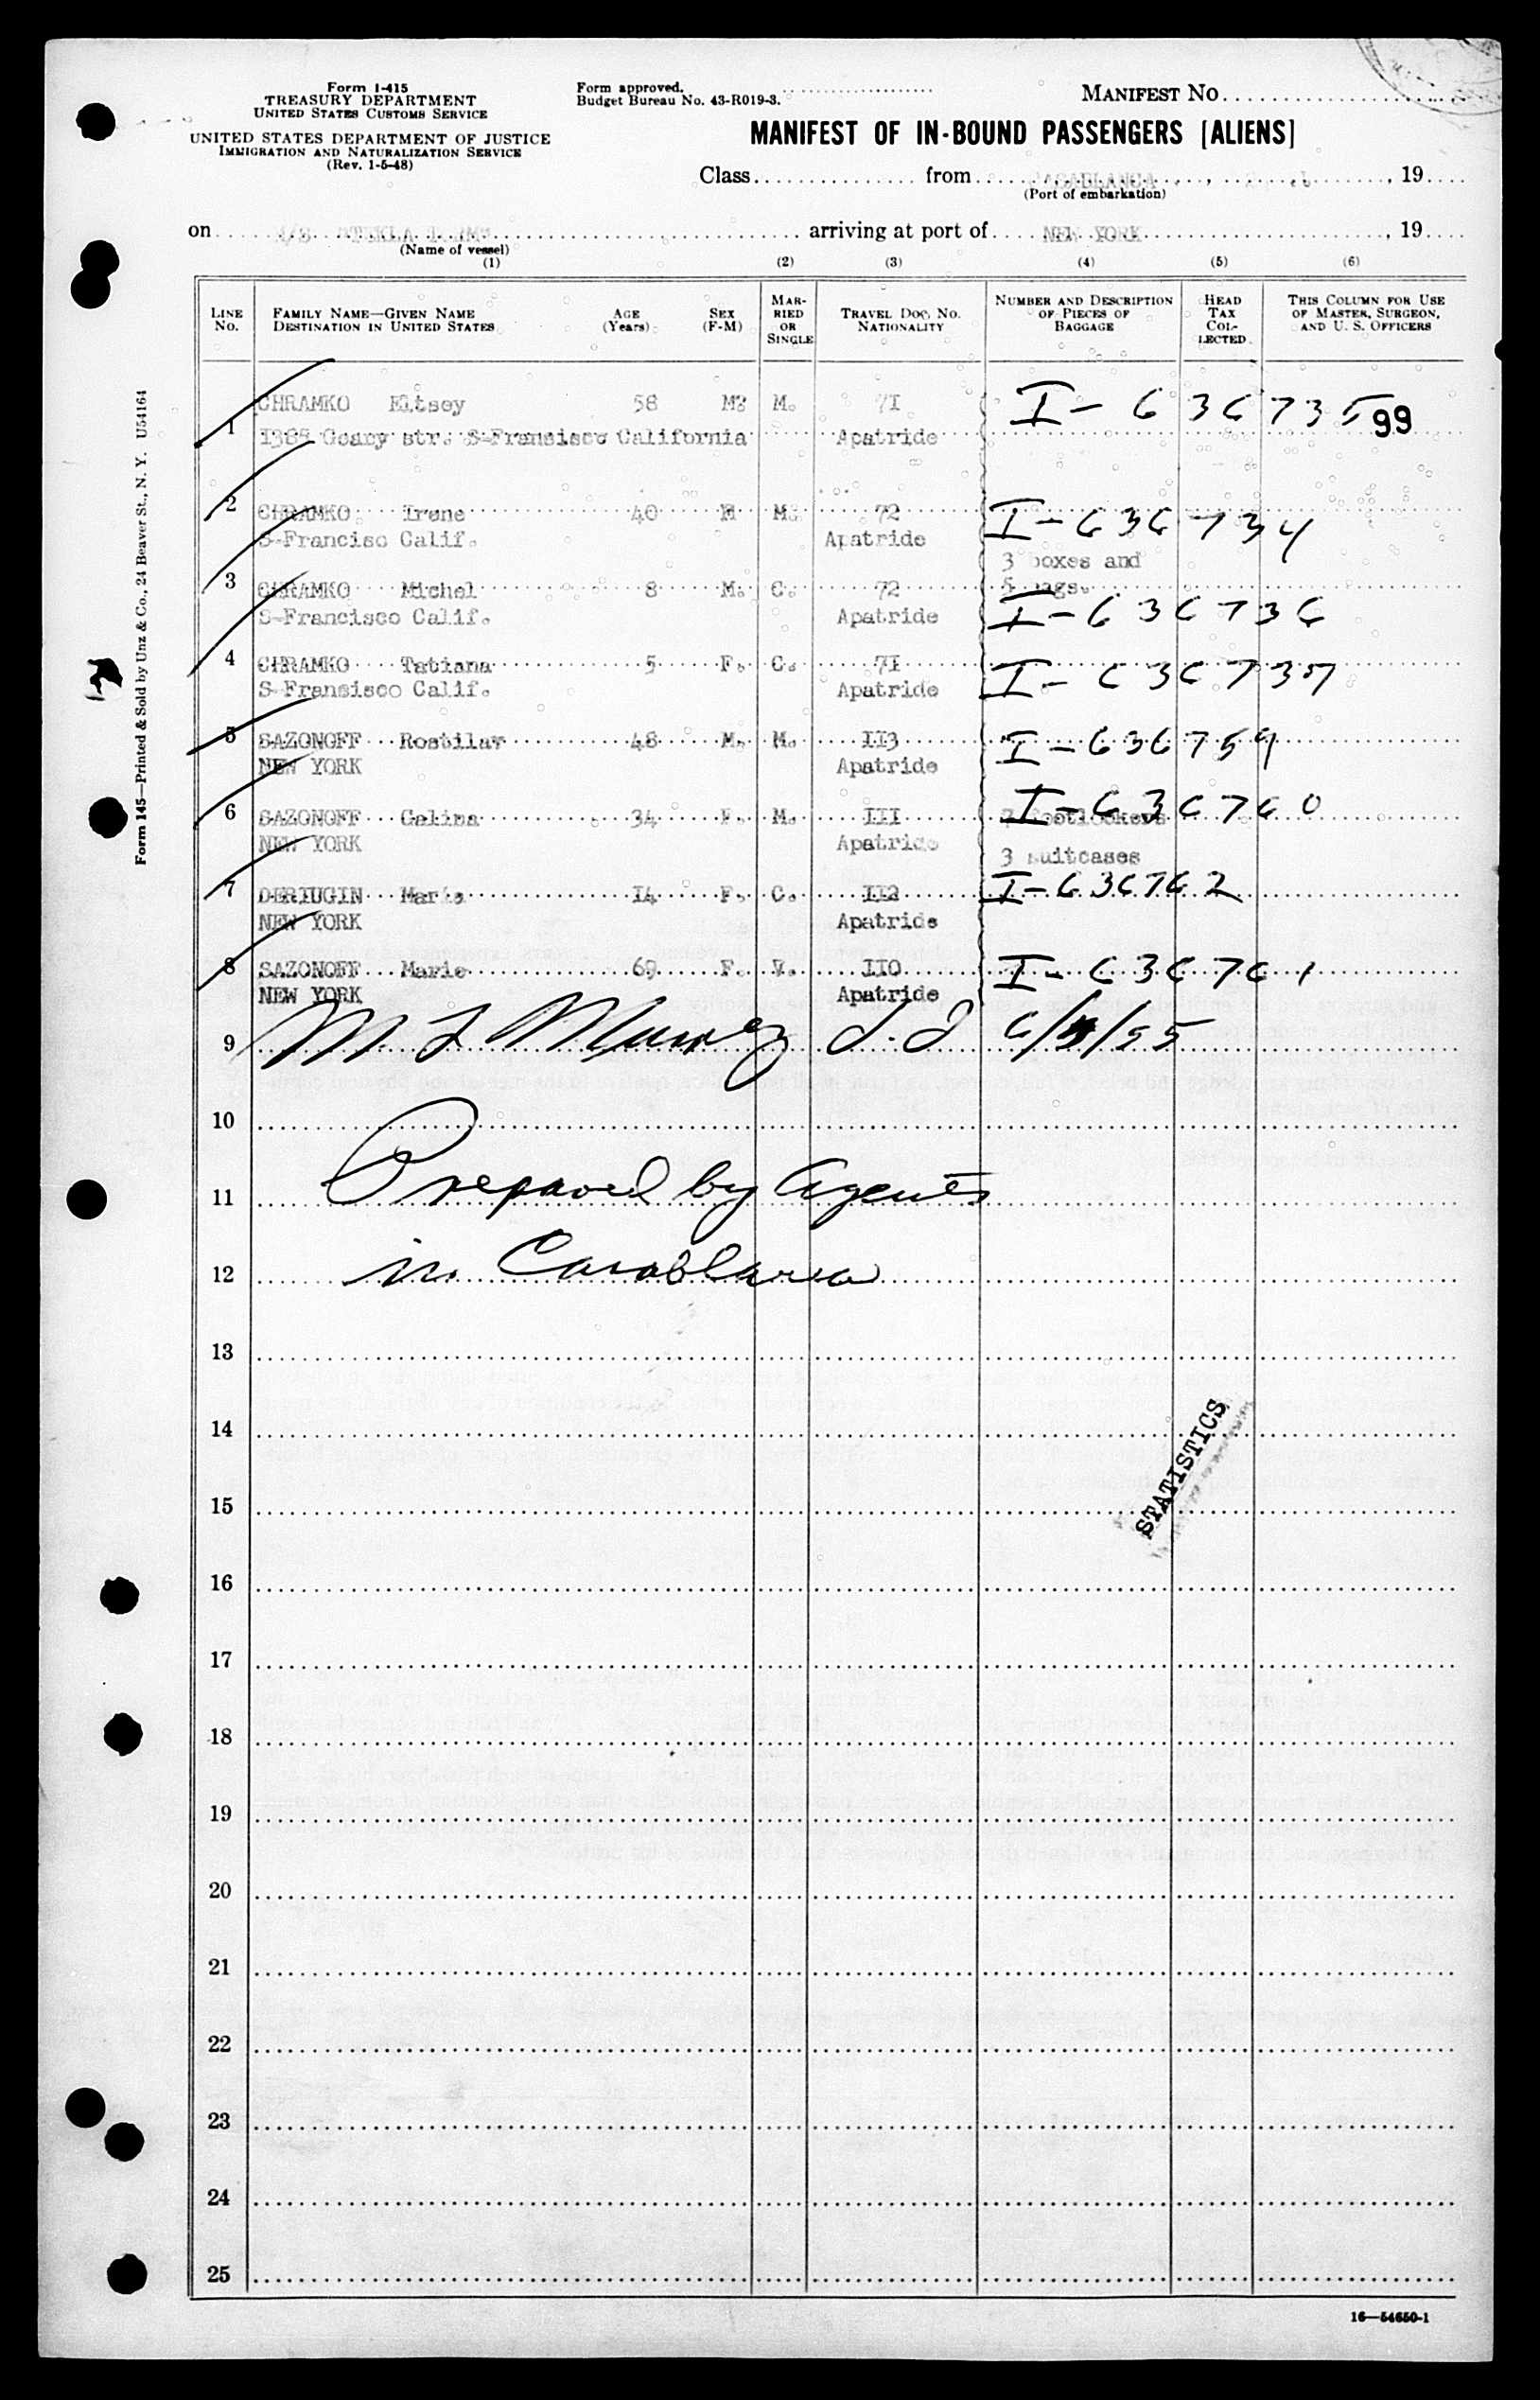 Form I-415
TREASURY DEPARTMENT
UNITED STATES CUSTOMS SERVICE
UNITED STATES DEPARTMENT OF JUSTICE
IMMIGRATION AND NATURALIZATION SERVICE
(Rev. 1-5-48)
Form approved.
Budget Bureau No. 43-R019-3.
MANIFEST NO.
MANIFEST OF IN-BOUND PASSENGERS [ALIENS]
Class from CASABLANCA , 19
(Port of embarkation)
on arriving at port of NEW YORK , 19
(Name of vessel)
(1) (2) (3) (4) (5) (6)
LINE NO.
FAMILY NAME—GIVEN NAME
DESTINATION IN UNITED STATES
AGE (Years)
SEX (F-M)
MARRIED OR SINGLE
TRAVEL DOC. NO. NATIONALITY
NUMBER AND DESCRIPTION OF PIECES OF BAGGAGE
HEAD TAX COLLECTED
THIS COLUMN FOR USE OF MASTER, SURGEON, AND U. S. OFFICERS
1 CHRAMKO Eltsey 58 M M. 71 I-636735 99
1385 Geary str. S-Fransisco California Apatride
2 CHRAMKO Irene 40 M. 72 I-636734
S-Francisc Calif. Apatride
3 boxes and
3 CHRAMKO Michel 8 M. C. 72 5 bags.
S-Francisco Calif. Apatride I-636736
4 CHRAMKO Tatiana 5 F. C. 71
S-Fransisco Calif. Apatride I-636737
5 SAZONOFF Rostilav 48 M. M. II3 I-636759
NEW YORK Apatride
6 SAZONOFF Galina 34 F. M. III footlockers I-636760
NEW YORK Apatride
3 suitcases
7 DERIUGIN Maria I4 F. C. II2 I-636762
NEW YORK Apatride
8 SAZONOFF Marie 69 F. V. IIO I-636761
NEW YORK Apatride
9
10
11 Prepared by Agents
12 in Casablanca
13
14
STATISTICS
15
16
17
18
19
20
21
22
23
24
25
16—54650-1
Form 145—Printed & Sold by Unz & Co., 24 Beaver St., N. Y. U54164